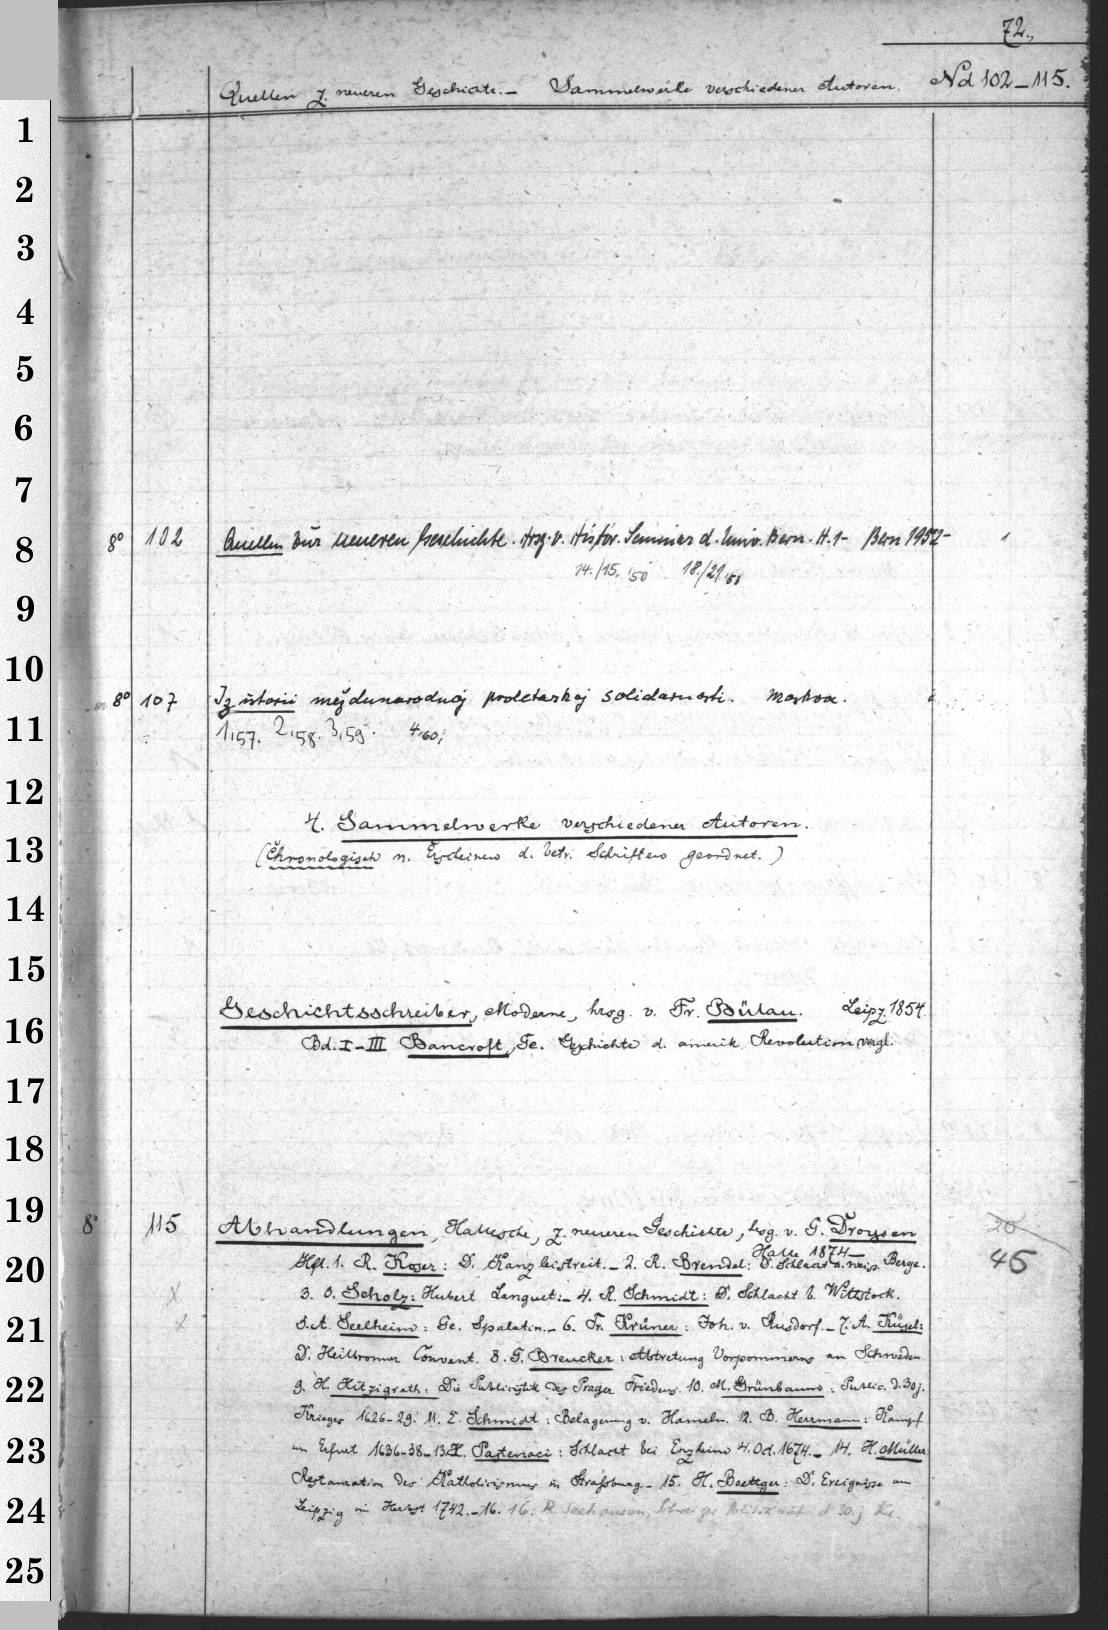 72.
Quellen z. neueren Geschichte. – Sammelwerke verschiedener Autoren. Nd 102–115.
1
2
3
4
5
6
7
8
8° 102 Quellen zur neueren Geschichte. Hrsg. v. Histor. Seminar d. Univ. Bern. H. 1- Bern 1952- 1
14./15. '50 18./21
9
10
8° 107 Iz istorii meždunarodnoj proletarskoj solidarnosti. Moskva.
11
1,57. 2,58. 3,59. 4,60;
12
4. Sammelwerke verschiedener Autoren.
13
(Chronologisch n. Erscheinen d. betr. Schriften geordnet.)
14
15
Geschichtsschreiber, Moderne, hrsg. v. Fr. Bülau. Leipz. 1854.
16
Bd. I–III Bancroft, Ge. Geschichte d. amerik. Revolution vergl.
17
18
19
8° 115 Abhandlungen, Hallesche, z. neueren Geschichte, hsg. v. G. Droysen 20
Halle 1874– 45
20
Hft. 1. R. Koser: D. Kanzleistreit. – 2. R. Brendel: D. Schlacht a. weiss. Berge.
3. O. Scholz: Hubert Languet: – 4. R. Schmidt: D. Schlacht b. Wittstock.
21
5. A. Seelheim: Ge. Spalatin. – 6. Fr. Krüner: Joh. v. Rusdorf. – 7. A. Küsel:
D. Heilbronner Convent. 8. G. Breucker: Abtretung Vorpommerns an Schweden
22
9. H. Hitzigrath: Die Publicistik des Prager Friedens. 10. M. Grünbaum: Public. d. 30j.
Krieges 1626–29. 11. E. Schmidt: Belagerung v. Hameln. 12. B. Herrmann: Kampf
23
um Erfurt 1636–38 – 13. H. Pastenaci: Schlacht bei Enzheim 4. Oct. 1674. – 14. H. Müller
Restauration des Katholicismus in Straßburg. – 15. H. Boettger: D. Ereignisse um
24
Leipzig im Herbst 1742. – 16. 16. R. Seehausen, Schweizer Politik während d 30. j Kr.
25